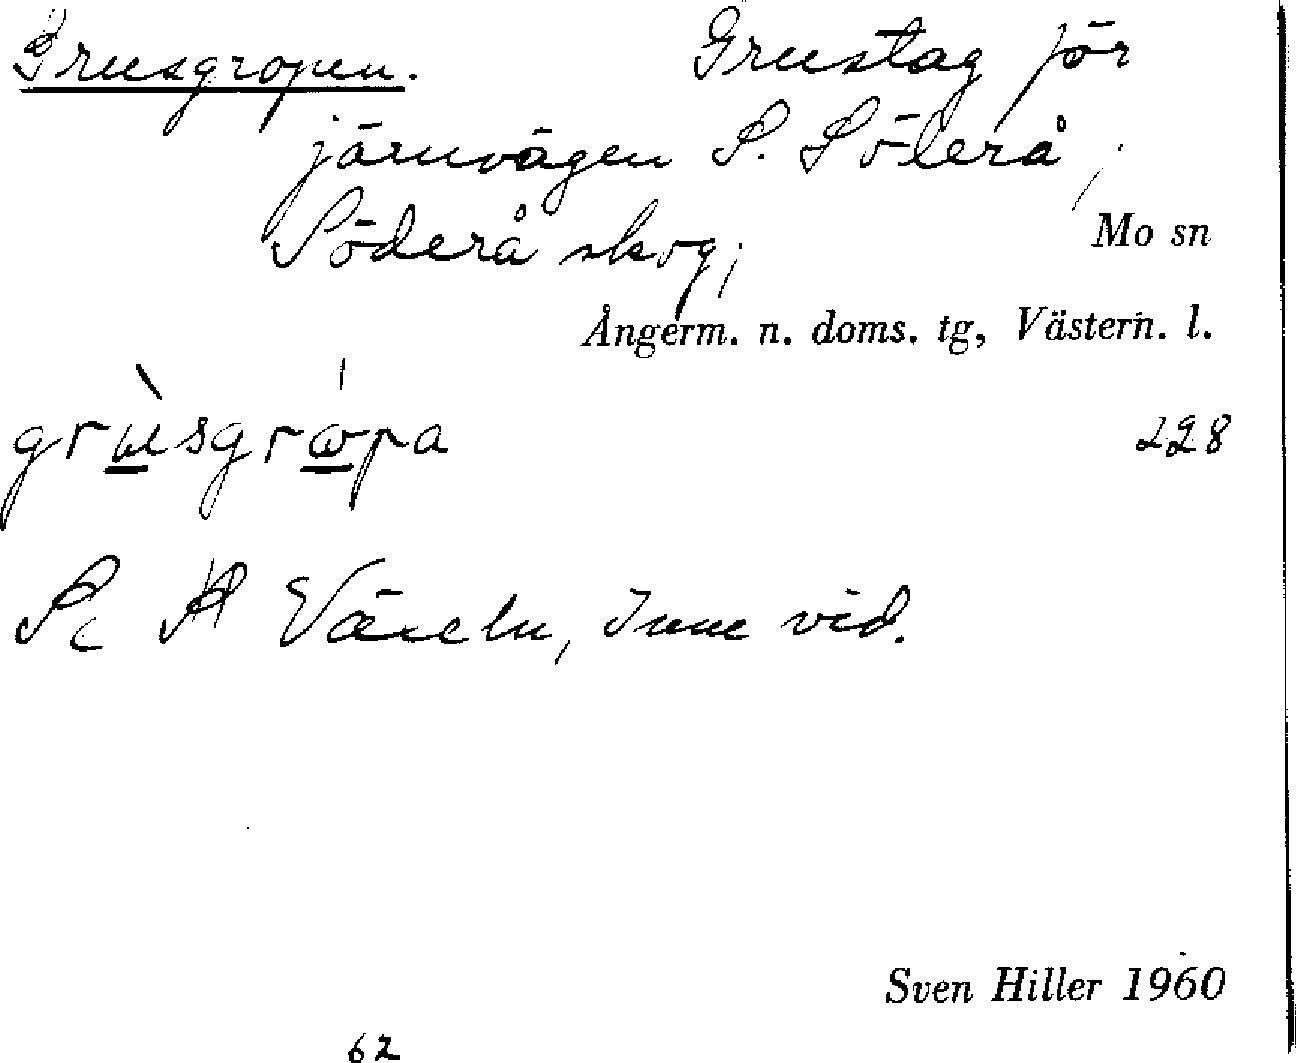 Grusgropen. Grustag för
järnvägen S. Söderå,
Söderå skog;
Mo sn
Ångerm. n. doms. tg, Västern. l.
grùsgrópa 228
vid.
Sven Hiller 1960
62